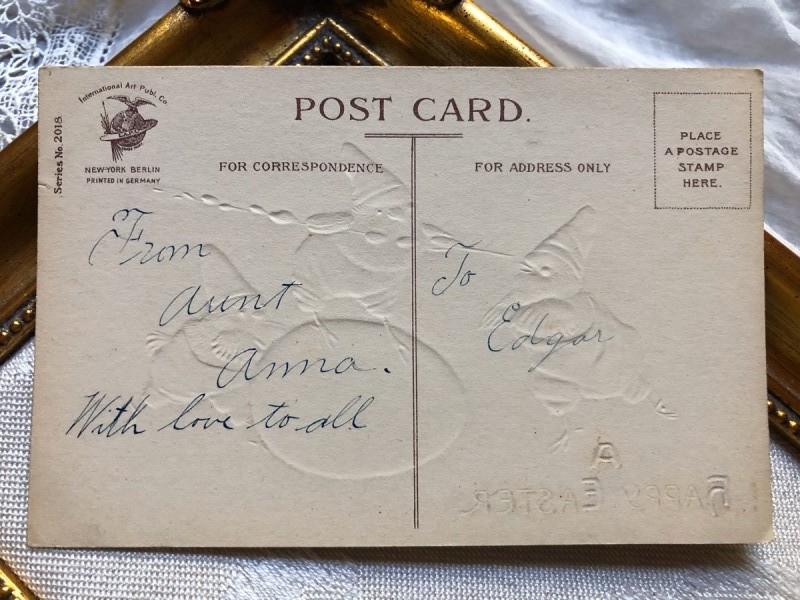 International Art Publ. Co
NEW-YORK BERLIN
PRINTED IN GERMANY
Series No. 2018.
POST CARD.
FOR CORRESPONDENCE
FOR ADDRESS ONLY
PLACE
A POSTAGE
STAMP
HERE.
From
Aunt
Anna.
With love to all
To
Edgar
A
HAPPY EASTER